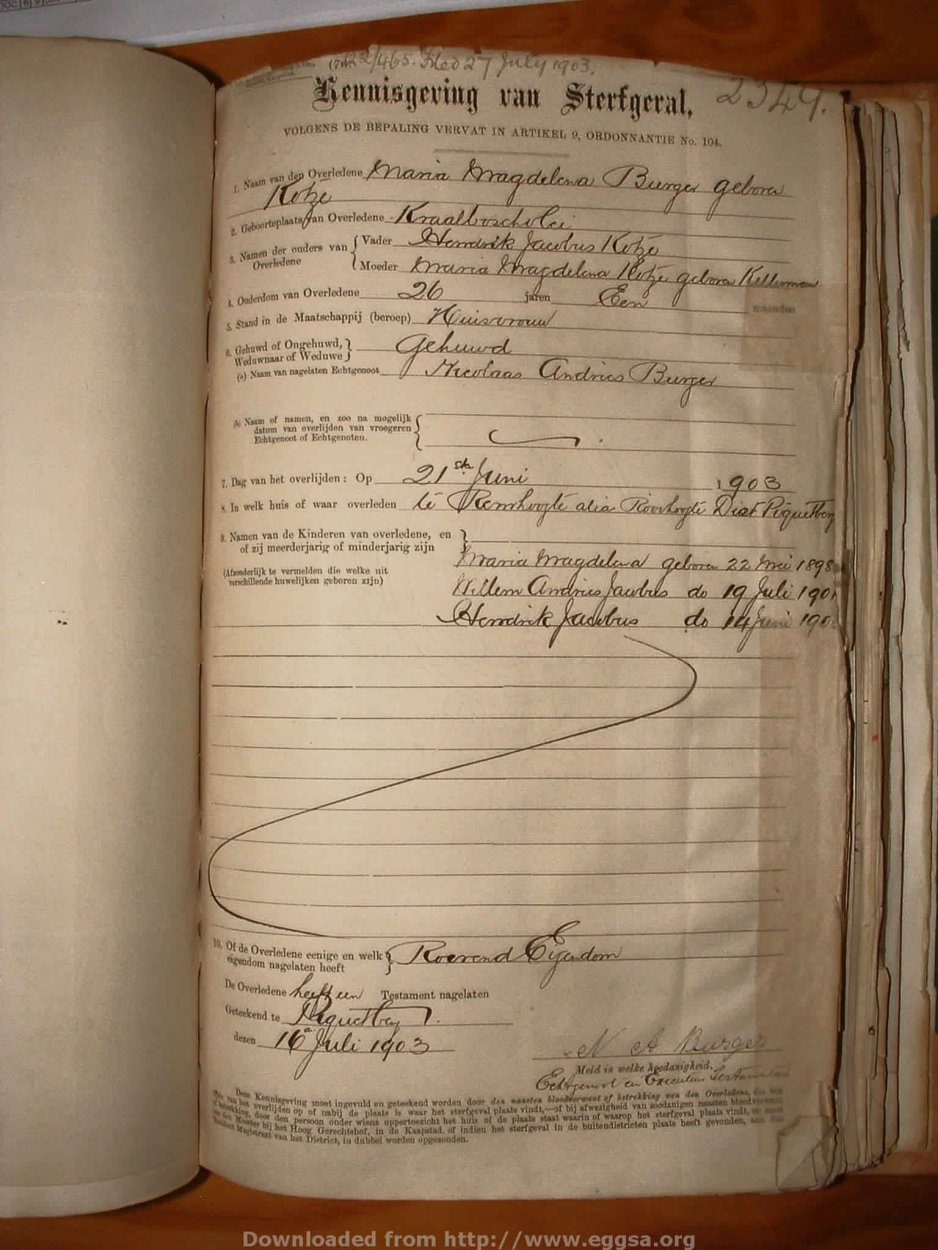 22/465. Filed 27 July 1903.
2549.
Kennisgeving van Sterfgeval,
VOLGENS DE BEPALING VERVAT IN ARTIKEL 9, ORDONNANTIE No. 104.
1. Naam van den Overledene Maria Magdelena Burger geboren
Kotze
2. Geboorteplaats van Overledene Kraalboschvlei
3. Namen der ouders van Overledene { Vader Hendrik Jacobus Kotze
Moeder Maria Magdelena Kotze geboren Kellerman
4. Ouderdom van Overledene 26 jaren Een maanden
5. Stand in de Maatschappij (beroep) Huisvrouw
6. Gehuwd of Ongehuwd, Weduwnaar of Weduwe } Gehuwd
(a) Naam van nagelaten Echtgenoot Nicolaas Andries Burger
(b) Naam of namen, en zoo na mogelijk
datum van overlijden van vroegeren
Echtgenoot of Echtgenoten.
7. Dag van het overlijden: Op 21ste Juni 1903
8. In welk huis of waar overleden te Renshoogte alia Rooihoogte Dist Piquetberg
9. Namen van de Kinderen van overledene, en
of zij meerderjarig of minderjarig zijn
(Afzonderlijk te vermelden die welke uit
verschillende huwelijken geboren zijn)
Maria Magdelena geboren 22 Mei 1898
Willem Andries Jacobus do 19 Juli 190
Hendrik Jacobus do 14 Juni 190
10. Of de Overledene eenige en welk
eigendom nagelaten heeft } Roerend Eigendom
De Overledene heeft een Testament nagelaten
Geteekend te Piquetberg
dezen 16e Juli 1903
N A Burger
Meld in welke hoedanigheid.
Echtgenoot en Executeur Testamentair
Deze Kennisgeving moet ingevuld en geteekend worden door den naasten bloedverwant of betrekking van den Overledene, die
van het overlijden op of nabij de plaats is waar het sterfgeval plaats vindt,—of bij afwezigheid van zoodanigen naasten bloedverwant
betrekking, door den persoon onder wiens oppertoezicht het huis of de plaats staat waarin of waarop het sterfgeval plaats vindt, en moet
den Meester bij het Hoog Gerechtshof, in de Kaapstad, of indien het sterfgeval in de buitendistricten plaats heeft gevonden, aan den
Resident Magistraat van het District, in dubbel worden opgezonden.
Downloaded from http://www.eggsa.org